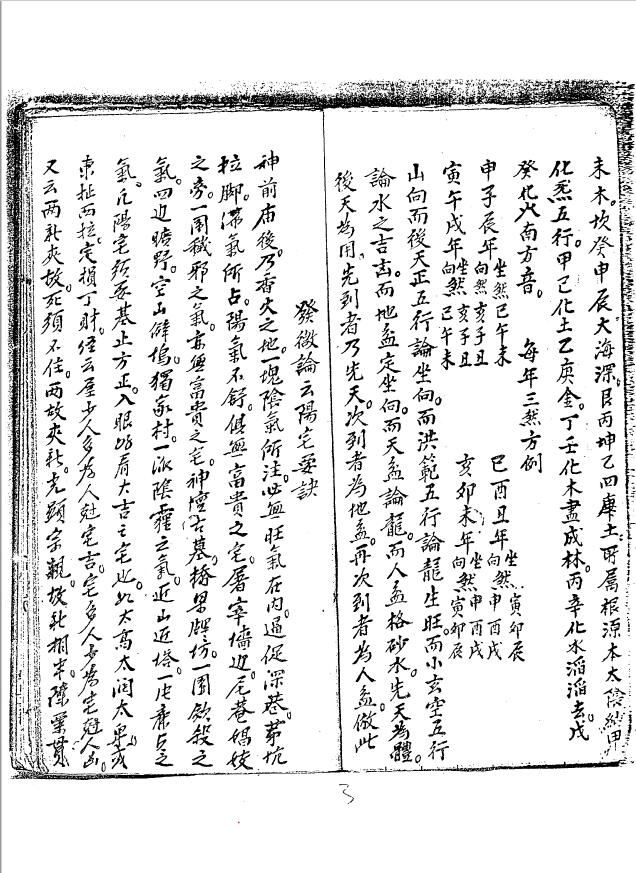 未木。坎癸申辰大海深。艮丙坤乙四庫土。所屬根源本太陰納甲
化炁五行。甲己化土乙庚金。丁壬化木盡成林。丙辛化水滔滔去戊
癸化火南方音。
每年三煞方例
申子辰年坐煞巳午未向煞亥子丑
巳酉丑年坐煞寅卯辰向煞申酉戌
寅午戌年坐煞亥子丑向煞巳午未
亥卯未年坐煞申酉戌向煞寅卯辰
山向而後天正五行論坐向。而洪範五行論龍生旺。而小玄空五行
論水之吉凶。而地盆定坐向。而天盆論龍。而人盆格砂水。先天為體。
後天為用。先到者乃先天。次到者為地盆。再次到者為人盆。倣此
發微論云陽宅要訣
神前庙後。乃香火之地。一塊陰氣所注。必無旺氣在內。逼促深巷。茅坑
拉脚。滯氣所占。陽氣不舒。俱無富貴之宅。屠宰墻边。尼菴娼妓
之旁。一團穢邪之氣。亦無富貴之宅。神壇古墓。橋梁牌坊。一團飲殺之
氣。四边曠野。空山僻塢。獨家村。一派陰霾之氣。近山近塔。一片廉貞之
氣。凡陽宅須要基止方正。入眼好看大吉之宅也。如太高太阔太卑或
東扯西拉。定損丁財。經云屋少人多為人尅宅吉。宅多人少為宅尅人凶。
又云兩新夾故。死須不住。兩故夾新。光顯宗親。故新相半。陳粟貫
3